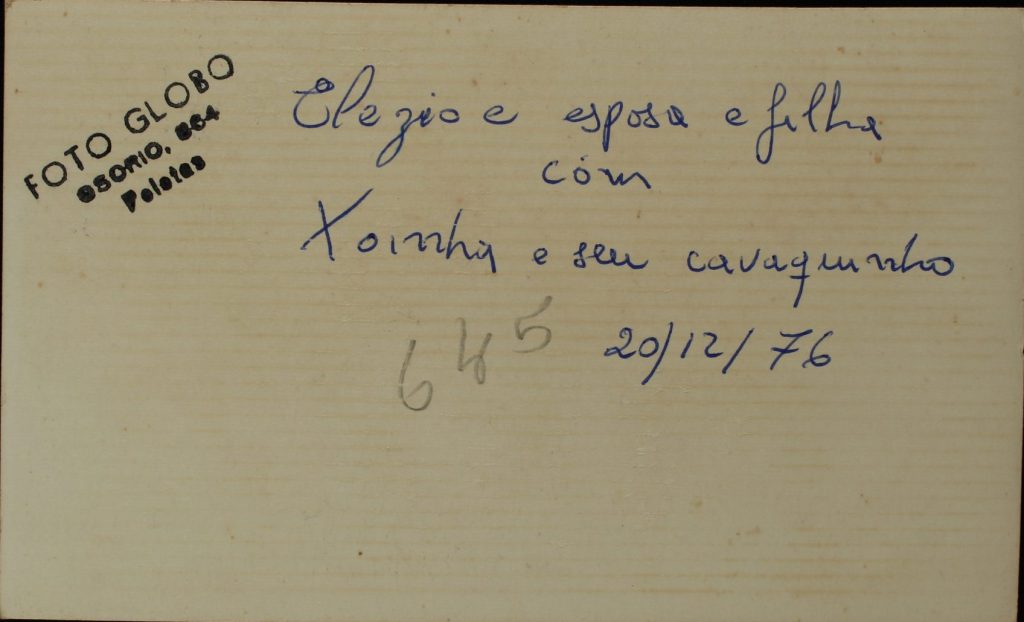 FOTO GLOBO
OSORIO, 864
Pelotas
Elezio e esposa e filha
com
Xoinha e seu cavaquinho
20/12/76